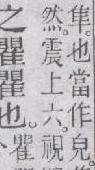 隼也當作皃
然震上六視
之瞿瞿也瞿